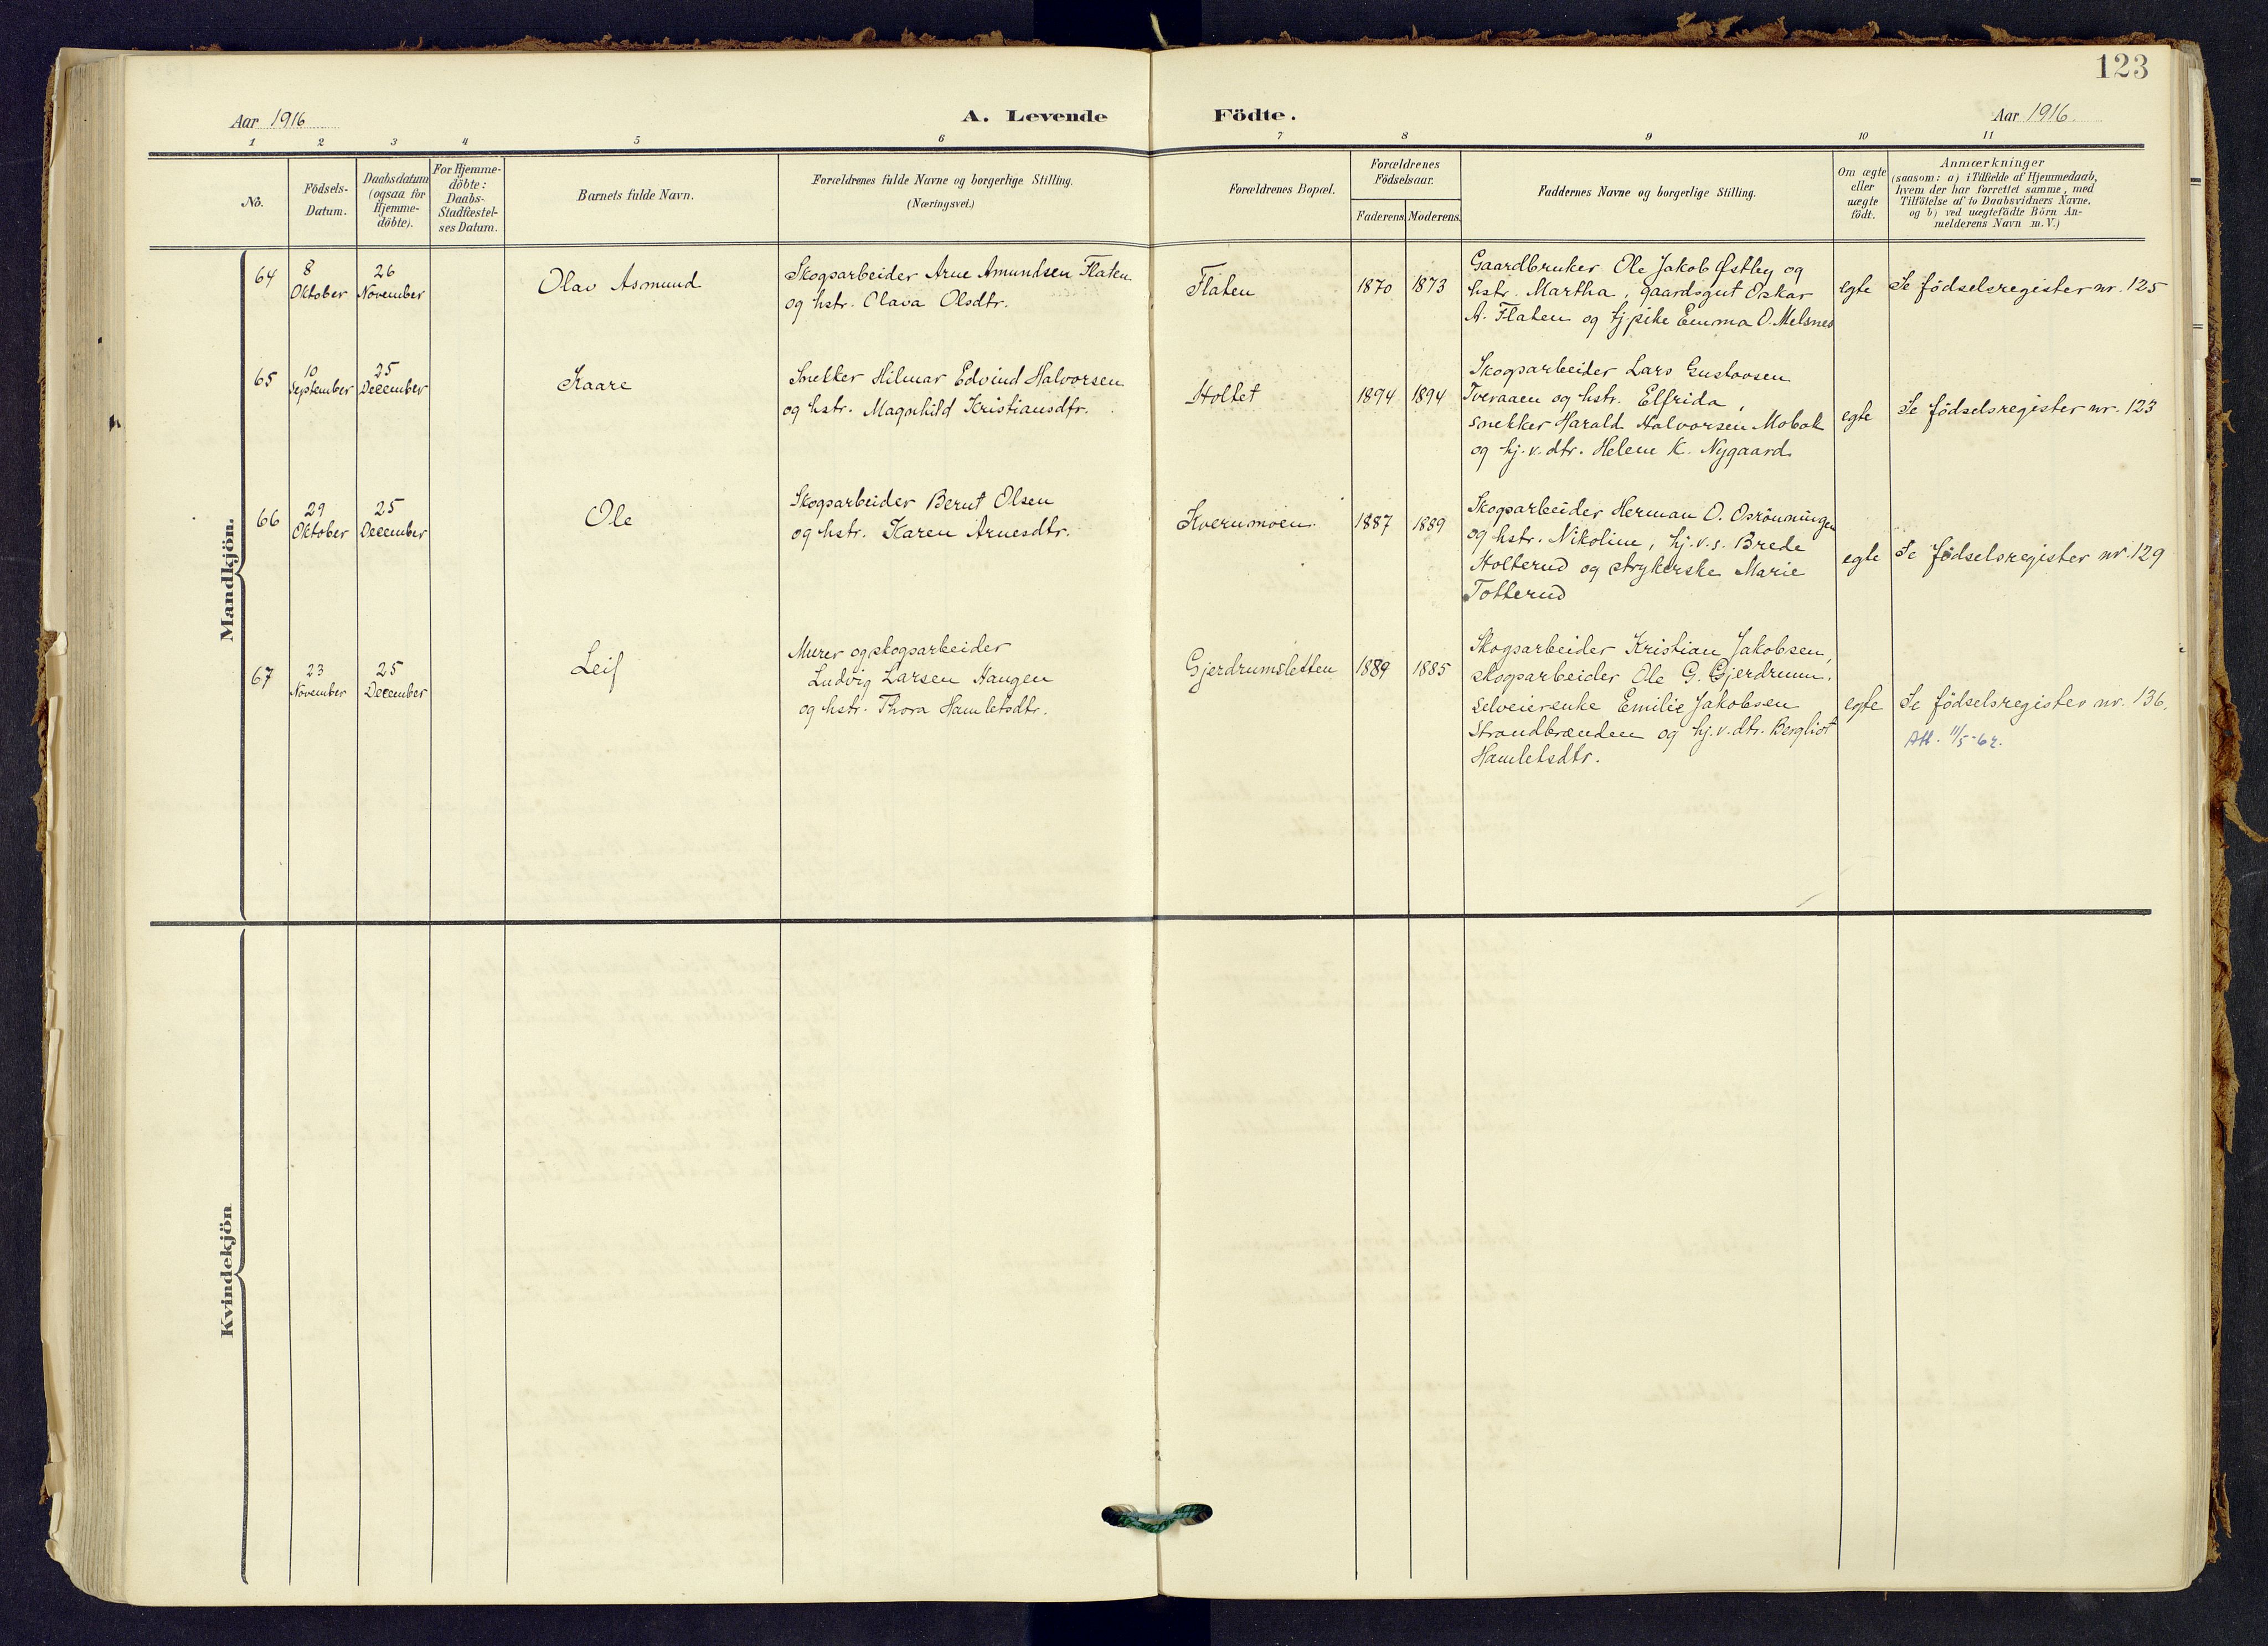 123
Aar 1916
A. Levende Födte.
Aar 1916.
1 2 3 4 5 6 7 8 9 10 11
No.
Födsels-
Datum.
Daabsdatum
(ogsaa for
Hjemme-
döbte).
For Hjemme-
döbte:
Daabs-
Stadfæstel-
ses Datum.
Barnets fulde Navn.
Forældrenes fulde Navne og borgerlige Stilling.
(Næringsvei.)
Forældrenes Bopæl.
Forældrenes
Födselsaar.
Faderens. Moderens.
Faddernes Navne og borgerlige Stilling.
Om ægte
eller
uægte
födt.
Anmærkninger
(saasom: a) i Tilfælde af Hjemmedaab,
hvem der har forrettet samme, med
Tilföielse af to Daabsvidners Navne,
og b) ved uægtefödte Börn An-
melderens Navn m. V.)
Mandkjön.
64
8
Oktober
26
November
Olav Asmund
Skogsarbeider Arne Amundsen Flaten
og hstr. Olava Olsdtr.
Flaten
1870 1873
Gaardbruker Ole Jakob Østby og
hstr. Martha, gaardsgut Oskar
A. Flaten og tj.pike Emma O. Melsnes
egte
Se födselsregister nr. 125
65
10
September
25
December
Kaare
Snekker Hilmar Edvind Halvorsen
og hstr. Magnhild Kristiansdtr.
Holtet
1894 1894
Skogsarbeider Lars Gustavsen
Tveraaen og hstr. Elfrida,
snekker Harald Halvorsen Mobak
og hj.v.dtr. Helene K. Nygaard
egte
Se födselsregister nr. 123
66
29
Oktober
25
December
Ole
Skogsarbeider Bernt Olsen
og hstr. Karen Arnesdtr.
Kvernmoen
1887 1889
Skogsarbeider Herman O. Osrönningen
og hstr. Nikoline, hj.v.s. Brede
Holterud og strykerske Marie
Totterud
egte
Se födselsregister nr. 129
67
23
November
25
December
Leif
Murer og skogsarbeider
Ludvig Larsen Haugen
og hstr. Thora Hamletsdtr.
Gjerdrumsletten
1889 1885
Skogsarbeider Kristian Jakobsen,
skogsarbeider Ole G. Gjerdrum,
selveierenke Emilie Jakobsen
Strandbrænden og hj.v.dtr. Bergliot
Hamletsdtr.
egte
Se födselsregister nr. 136.
Att. 11/5-62.
Kvindekjön